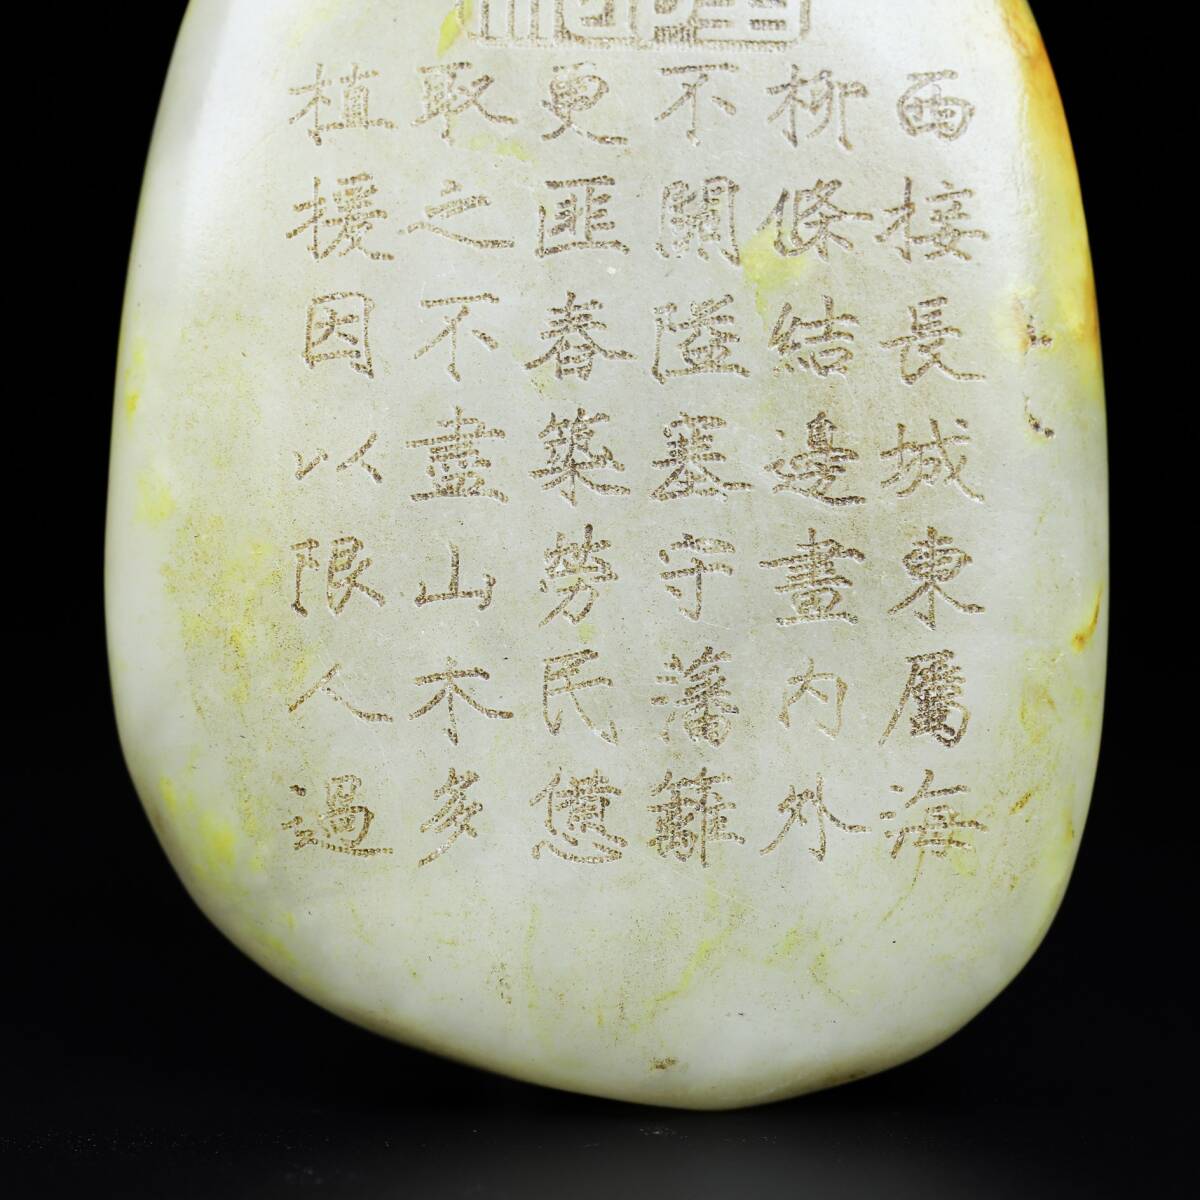 西接長城東屬海
柳條結邊畫內外
不關隘塞守藩籬
更匪春築勞民憊
取之不盡山木多
植援因以限人過